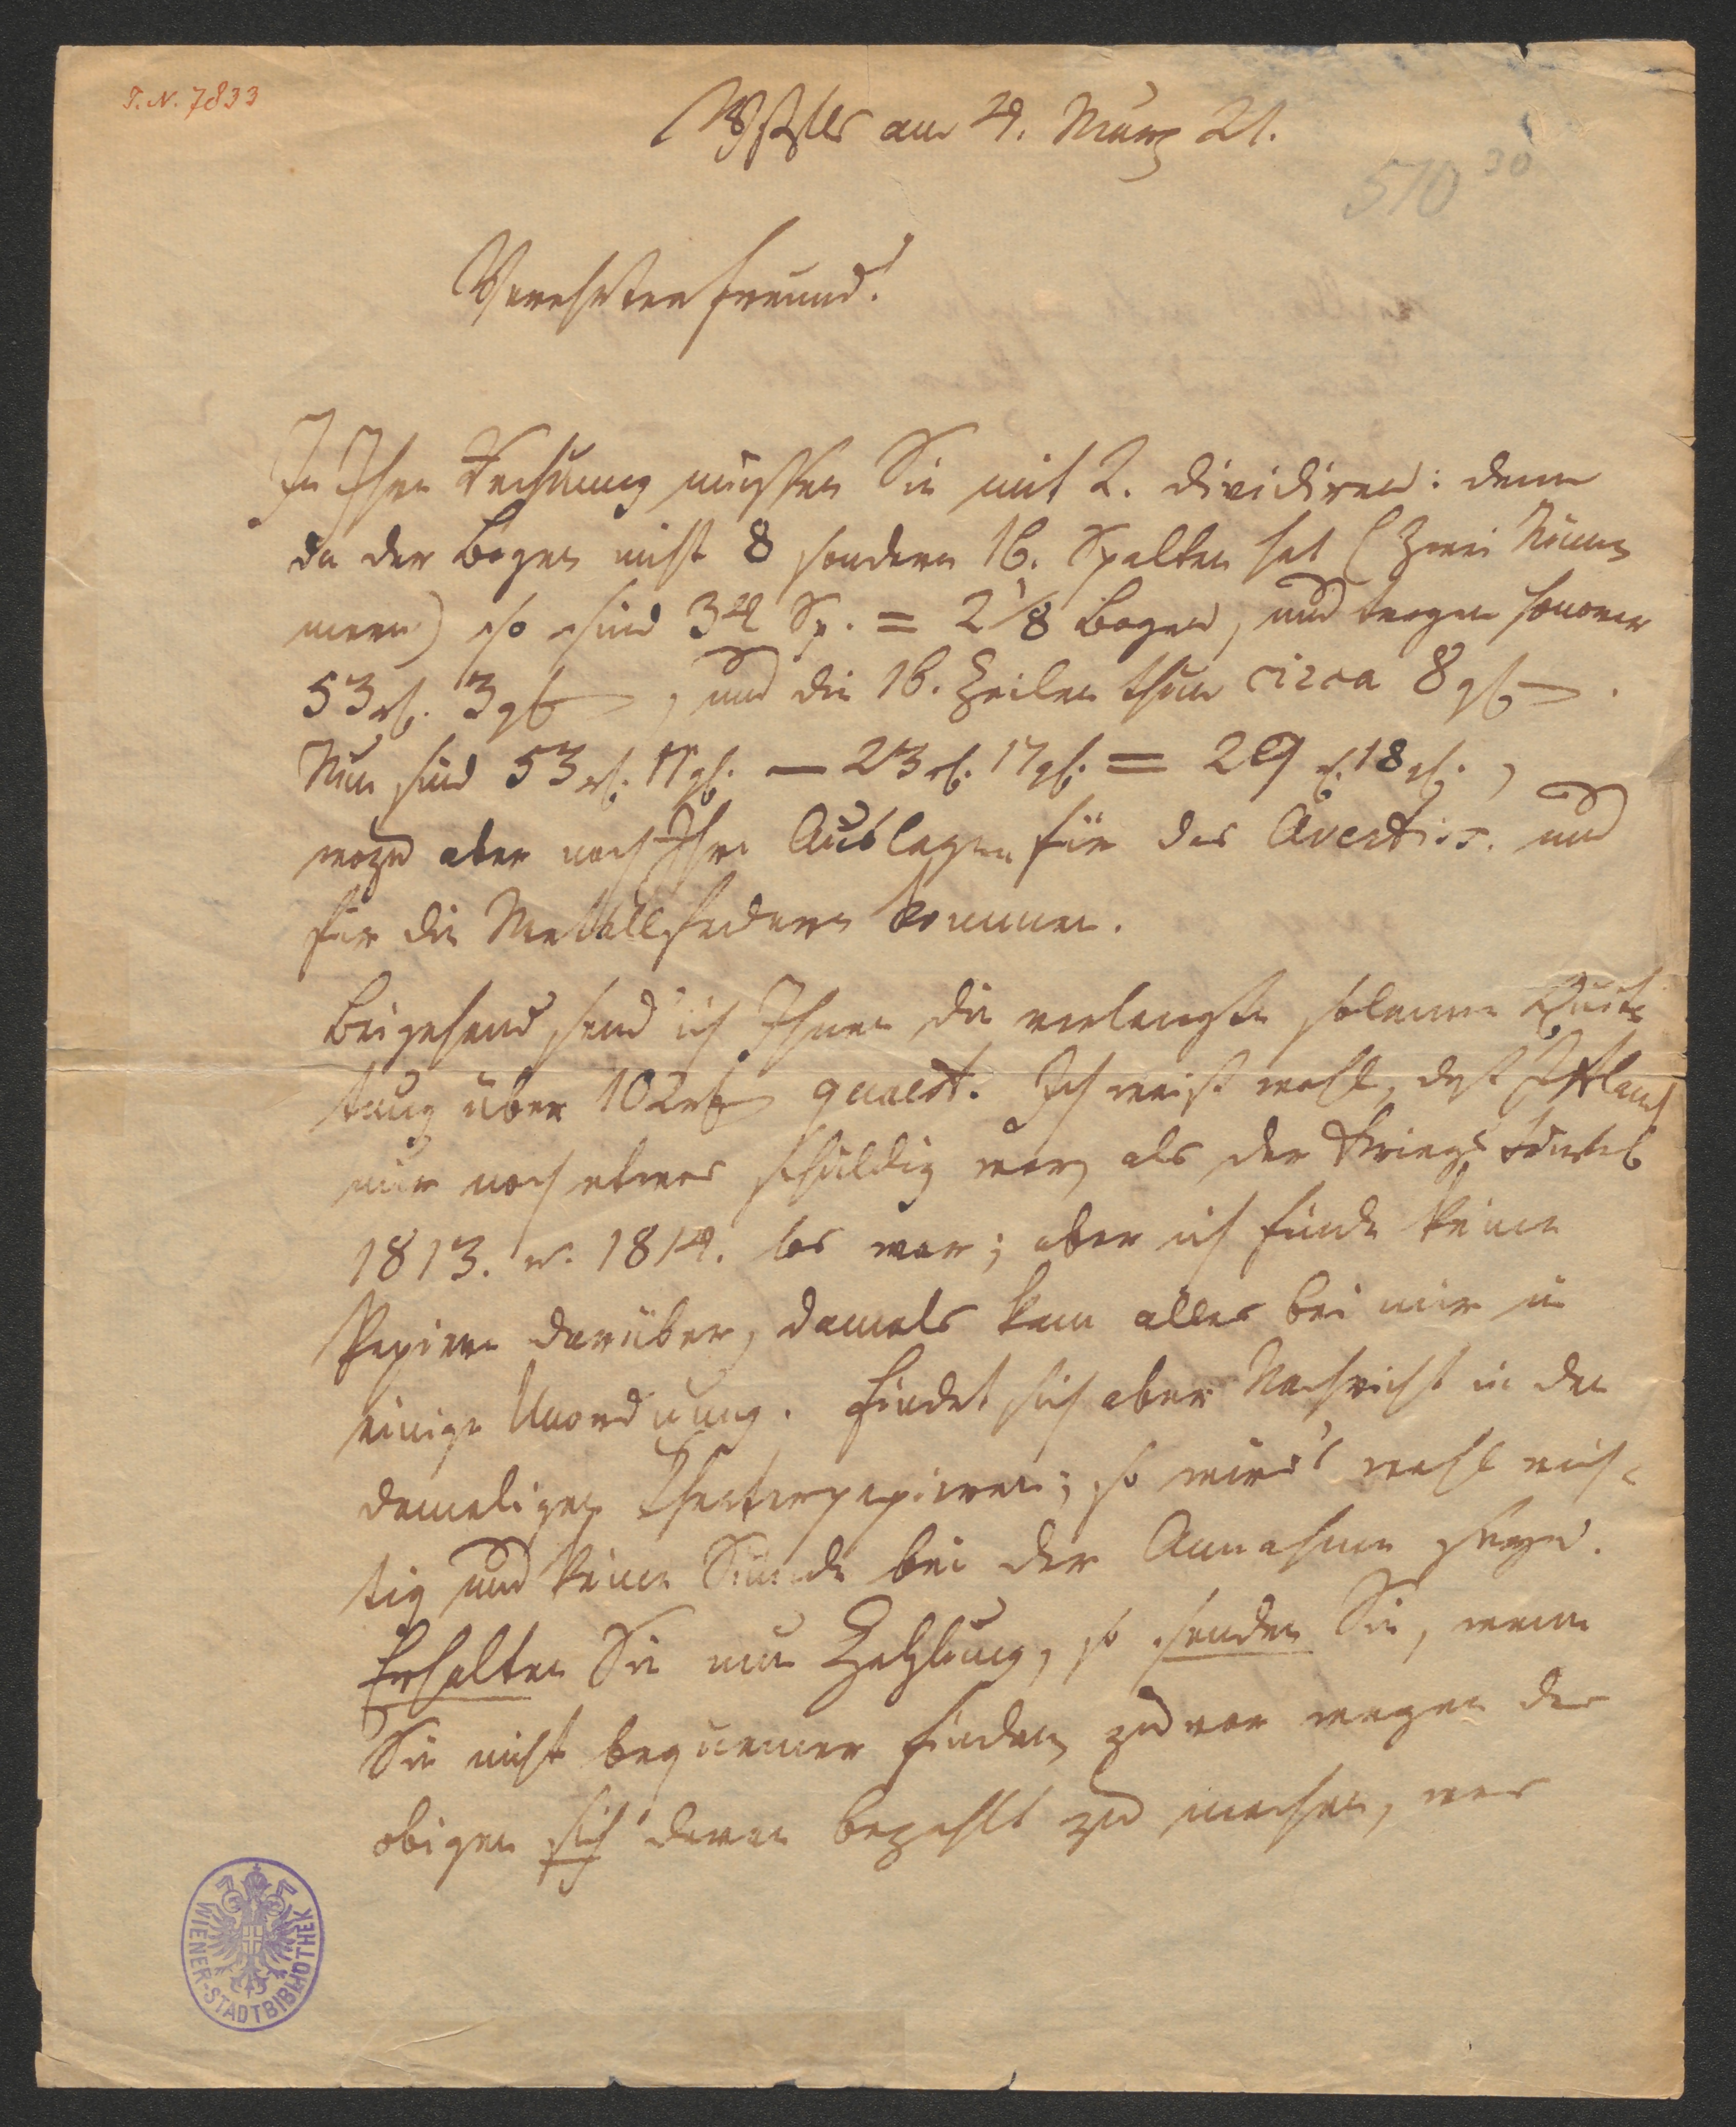 I. N. 7833
Wßfls am 4. März 21.
510 30
Verehrter Freund!
In Ihrer Rechnung müssen Sie mit 2. dividiren: denn
da der Bogen nicht 8 sondern 16. Spalten hat (zwei Num
mern) so sind 34 Sp. = 2 1/8 Bogen, und tragen honorar
53 rh. 3 gh, und die 16. Zeilen thun circa 8 gh.
Nun sind 53 rh. 11 gh. — 23 rh. 17 gh. = 29 rh. 18 gh.,
wozu aber noch Ihre Auslagen für das Avertiss. und
für die Metallfedern kommen.
Beigehend send' ich Ihnen die verlangte solenne Quit
tung über 102 rh quaest. Ich weiß wohl, daß Iffland
mir noch etwas schuldig war, als der Kriegs
1813. u. 1814. los war; aber ich finde keine
Papiere darüber, damals kam alles bei mir in
einige Unordnung. Findet sich aber Nachricht in den
damaligen Theaterpapieren; so wird's wohl rich-
tig und keine Sünde bei der Annahme seyn.
Erhalten Sie nun Zahlung, so senden Sie, wenn
Sie nicht bequemer finden, zuvor wegen der
obigen sich davon bezahlt zu machen, was
WIENER-STADTBIBLIOTHEK